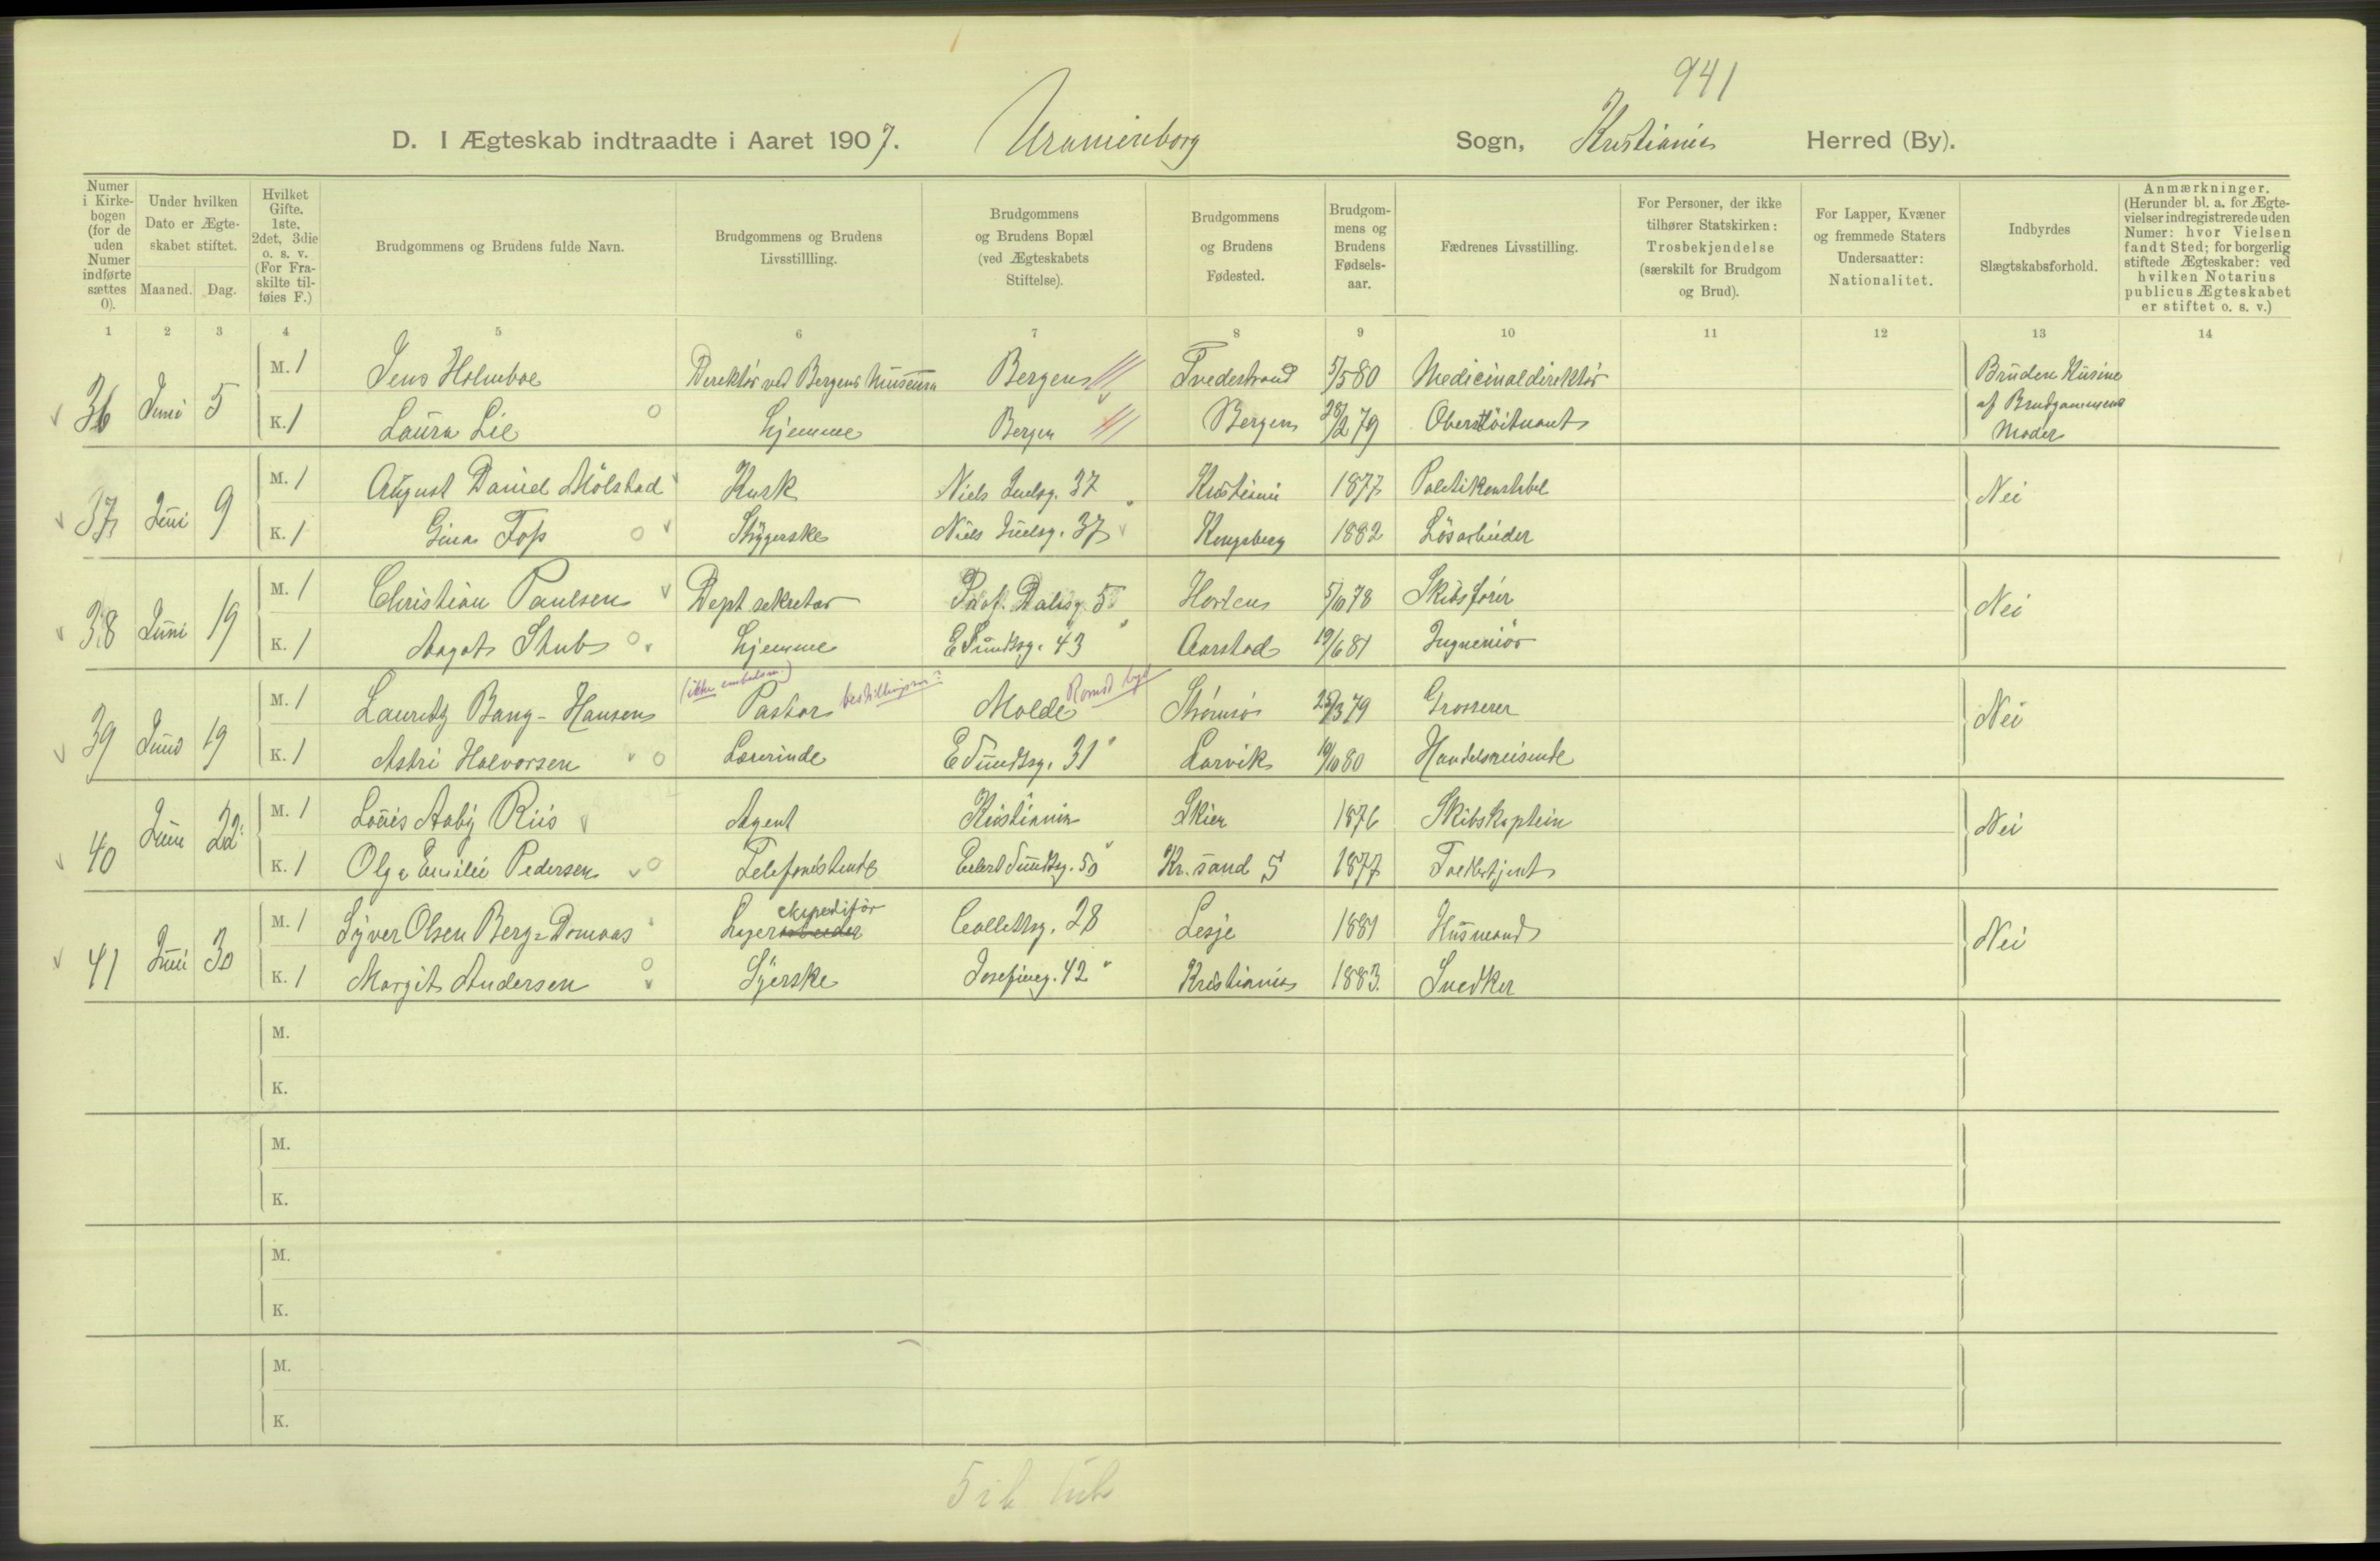 941
D. I Ægteskab indtraadte i Aaret 1907. Uranienborg Sogn, Kristiania Herred (By).
Numer i Kirkebogen (for de uden Numer indførte sættes 0).
Under hvilken Dato er Ægteskabet stiftet.
Maaned. Dag.
Hvilket Gifte. 1ste. 2det, 3die o. s. v. (For Fraskilte tilføies F.)
Brudgommens og Brudens fulde Navn.
Brudgommens og Brudens Livsstillling.
Brudgommens og Brudens Bopæl (ved Ægteskabets Stiftelse).
Brudgommens og Brudens Fødested.
Brudgommens og Brudens Fødselsaar.
Fædrenes Livsstilling.
For Personer, der ikke tilhører Statskirken: Trosbekjendelse (særskilt for Brudgom og Brud).
For Lapper, Kvæner og fremmede Staters Undersaatter: Nationalitet.
Indbyrdes Slægtskabsforhold.
Anmærkninger. (Herunder bl. a. for Ægtevielser indregistrerede uden Numer: hvor Vielsen fandt Sted; for borgerlig stiftede Ægteskaber: ved hvilken Notarius publicus Ægteskabet er stiftet o. s. v.)
1 2 3 4 5 6 7 8 9 10 11 12 13 14
36 Juni 5 M. 1 Jens Holmboe Direktör ved Bergens Museum Bergen Tvedestrand 5/5 80 Medicinaldirektör Bruden Kusine af Brudgommens Moder
K. 1 Laura Lie Hjemme Bergen Bergen 28/2 79 Oberstlöitnant
37 Juni 9 M. 1 August Daniel Mölstad Kusk Niels Juelsg. 37 Kristiania 1877 Politikonstabel Nei
K. 1 Gina Foss Strygerske Niels Juelsg. 37 Kongsberg 1882 Lösarbeider
38 Juni 19 M. 1 Christian Paulsen Dept sekretær Prof. Dahlsg. 5 Horten 5/10 78 Skibsfører Nei
K. 1 Aagot Stub Hjemme E Sundtsg. 43 Aarstad 19/6 81 Ingeniör
(ikke embedsm.) bestillingsm? Romsd byd
39 Juni 19 M. 1 Lauritz Bang-Hansen Pastor Molde Strömsö 25/3 79 Grosserer Nei
K. 1 Astri Halvorsen Lærerinde E Sundtsg. 31 Larvik 19/10 80 Handelsreisende
40 Juni 22 M. 1 Louis Aaby Riis Agent Kristiania Skien 1876 Skibskaptein Nei
K. 1 Olga Emilie Pedersen Telefonistinde Eilert Sundtsg. 50 Kr. sand S 1877 Toldbetjent
ekspeditör
41 Juni 30 M. 1 Syver Olsen Berg-Domaas Lagerarbeider Collettsg. 28 Lesje 1881 Husmand Nei
K. 1 Margit Andersen Syerske Josefineg. 42 Kristiania 1883. Snedker
M.
K.
M.
K.
M.
K.
M.
K.